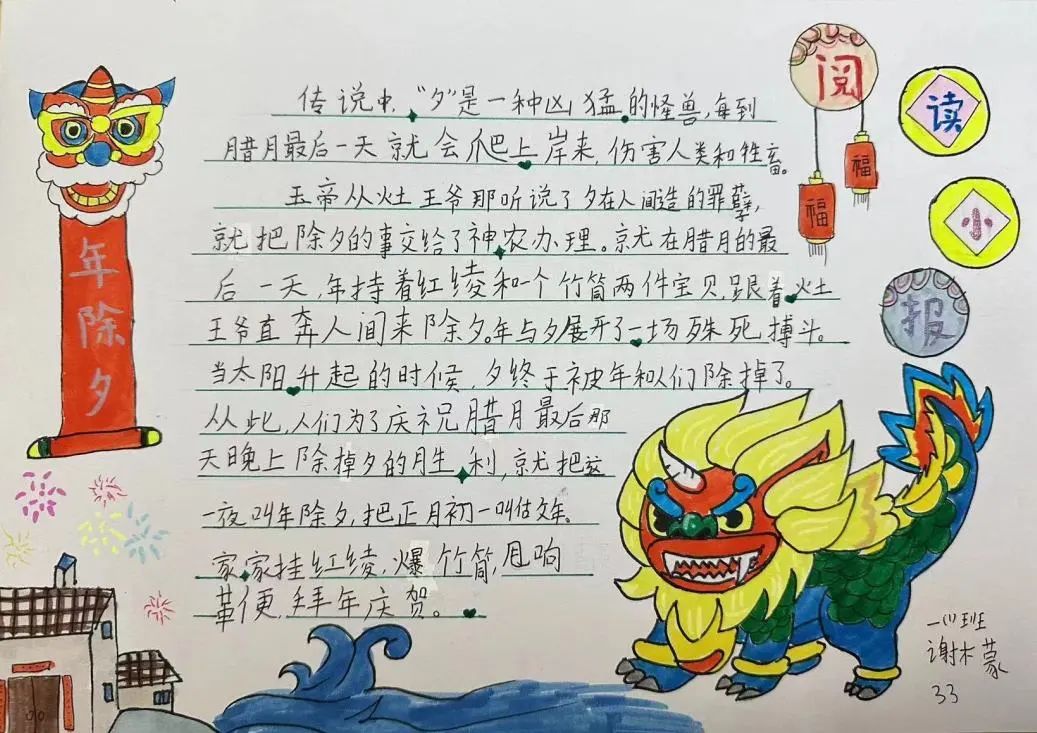 年除夕
阅读小报
福
福
传说中,“夕”是一种凶猛的怪兽,每到
腊月最后一天就会爬上岸来,伤害人类和牲畜。
玉帝从灶王爷那听说了夕在人间造的罪孽,
就把除夕的事交给了神农办理。就在腊月的最
后一天,年持着红绫和一个竹筒两件宝贝,跟着灶
王爷直奔人间来除夕。年与夕展开了一场殊死搏斗。
当太阳升起的时候,夕终于被年和人们除掉了。
从此,人们为了庆祝腊月最后那
天晚上除掉夕的胜利,就把这
一夜叫年除夕,把正月初一叫估文年。
家家挂红绫,爆竹筒,甩响
革便,拜年庆贺。
一(1)班
谢林蒙
33